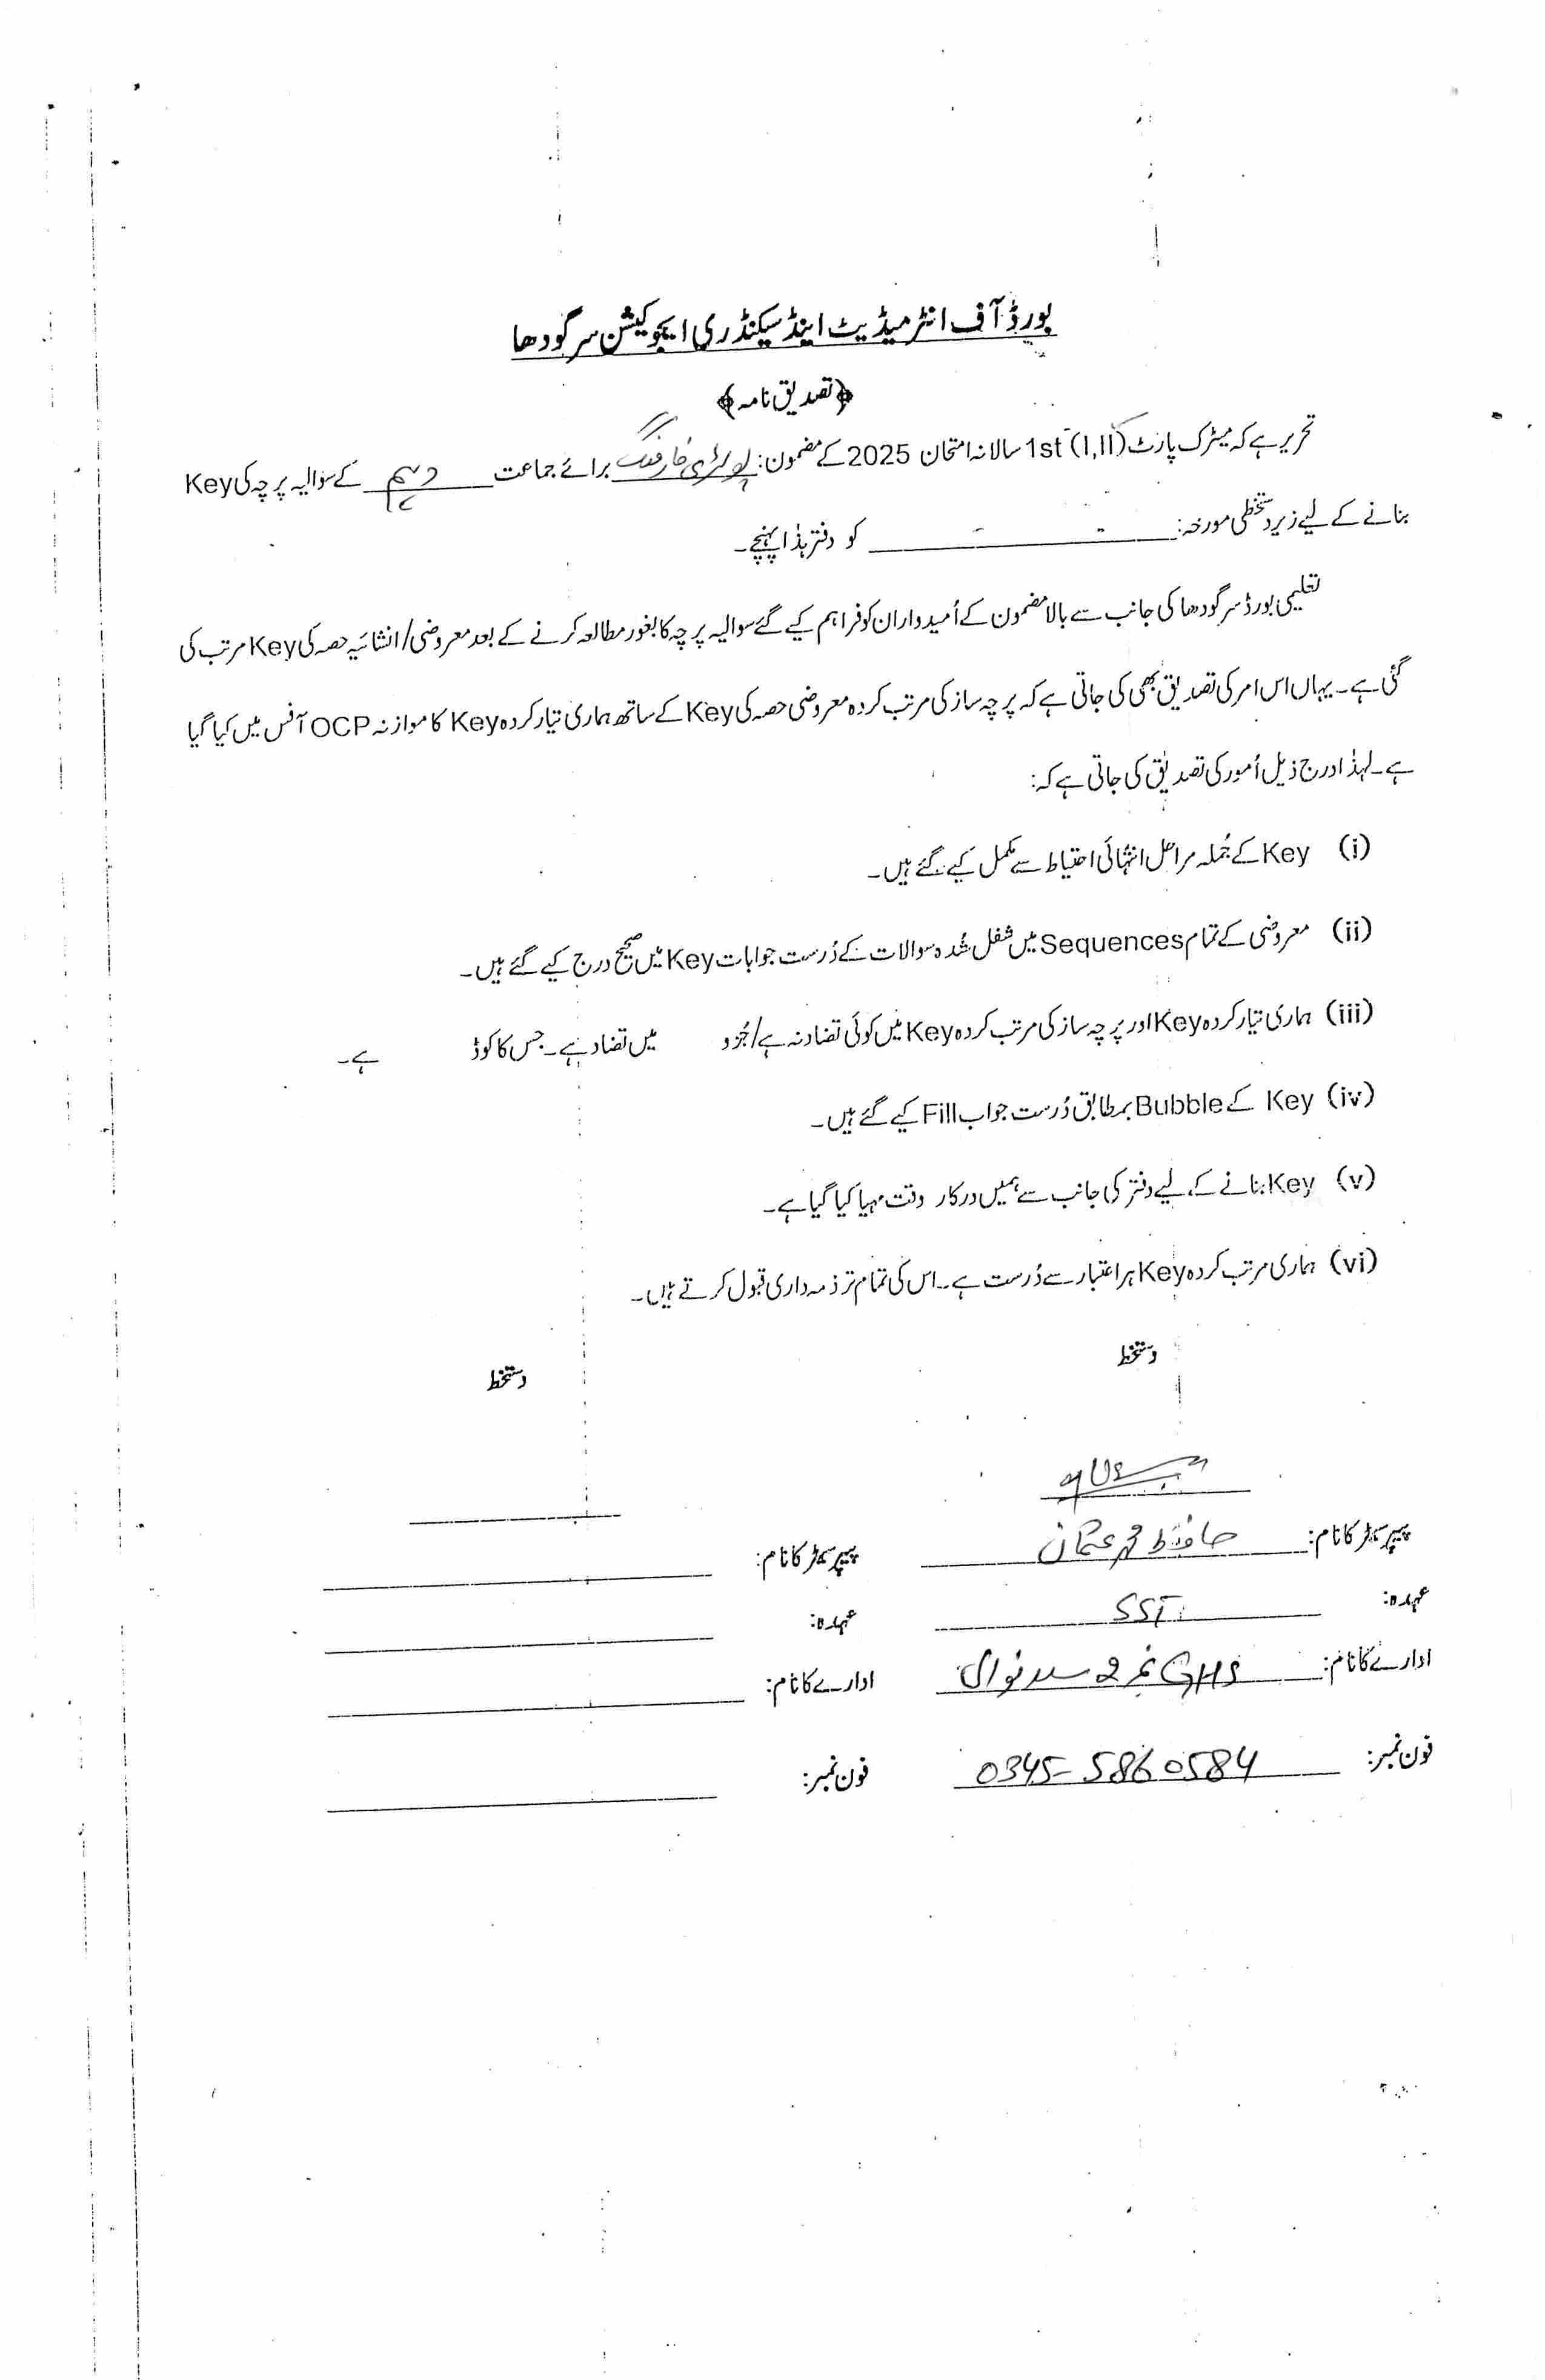 بورڈ آف انٹرمیڈیٹ اینڈ سیکنڈری ایجوکیشن سرگودھا
﴿تصدیق نامہ﴾
تحریر ہے کہ میٹرک پارٹ (I,II) 1st سالانہ امتحان 2025 کے مضمون: پولٹری فارمنگ برائے جماعت دہم کے سوالیہ پرچہ کی Key
بنانے کے لیے زیر دستخطی مورخہ: کو دفتر ہذا پہنچے۔
تعلیمی بورڈ سرگودھا کی جانب سے بالا مضمون کے اُمیدواران کو فراہم کیے گئے سوالیہ پرچہ کا بغور مطالعہ کرنے کے بعد معروضی/انشائیہ حصہ کی Key مرتب کی
گئی ہے۔ یہاں اس امر کی تصدیق بھی کی جاتی ہے کہ پرچہ ساز کی مرتب کردہ معروضی حصہ کی Key کے ساتھ ہماری تیار کردہ Key کا موازنہ OCP آفس میں کیا گیا
ہے۔ لہٰذا درج ذیل اُمور کی تصدیق کی جاتی ہے کہ:
(i) Key کے جُملہ مراحل انتہائی احتیاط سے مکمل کیے گئے ہیں۔
(ii) معروضی کے تمام Sequences میں شفل شُدہ سوالات کے دُرست جوابات Key میں صحیح درج کیے گئے ہیں۔
(iii) ہماری تیار کردہ Key اور پرچہ ساز کی مرتب کردہ Key میں کوئی تضاد نہ ہے/جُزو میں تضاد ہے۔ جس کا کوڈ ہے۔
(iv) Key کے Bubble بمطابق دُرست جواب Fill کیے گئے ہیں۔
(v) Key بنانے کے لیے دفتر کی جانب سے ہمیں درکار وقت مہیا کیا گیا ہے۔
(vi) ہماری مرتب کردہ Key ہر اعتبار سے دُرست ہے۔ اس کی تمام تر ذمہ داری قبول کرتے ہیں۔
دستخط دستخط
پیپر سیٹر کا نام: حافظ محمد عثمان پیپر سیٹر کا نام:
عہدہ: SST عہدہ:
ادارے کا نام: GHS نمبر 2 ادارے کا نام:
فون نمبر: 0345-5860584 فون نمبر: